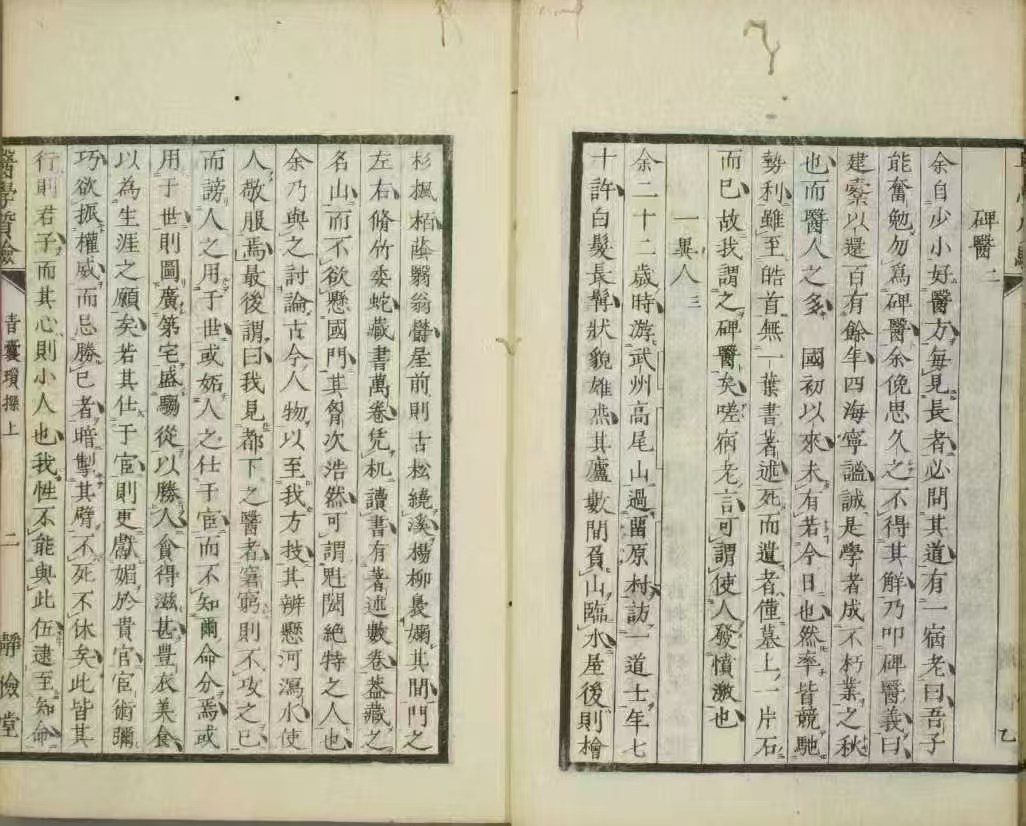 碑醫 二
余自少小好醫方每見長者必問其道有一宿老曰吾子
能奮勉勿為碑醫余俛思久之不得其解乃叩碑醫義曰
建櫜以還百有餘年四海寧謐誠是學者成不朽業之秋
也而醫人之多 國初以來未有若今日也然率皆競馳
勢利雖至皓首無一葉書著述死而遺者僅墓上一片石
而已故我謂之碑醫矣嗟病老言可謂使人發憤激也
一異人 三
余二十二歲時游武州高尾山過畱原村訪一道士年七
十許白髮長髯狀貌雄燕其廬數間負山臨水屋後則檜
乙
杉楓栢蔭翳翁欝屋前則古松繞溪楊柳裊嫋其間門之
左右脩竹委蛇藏書萬卷凭机讀書有著述數卷葢藏之
名山而不欲懸國門其胷次浩然可謂魁閎絶特之人也
余乃與之討論古今人物以至我方技其辨懸河瀉水使
人敬服焉最後謂曰我見都下之醫者窮則不攻之已
而謗人之用于世或妬人之仕于宦而不知爾命分焉或
用于世則圖廣第宅盛騶從以勝人食得滋甚豊衣美食
以為生涯之願矣若其仕于宦則更獻媚於貴官宦術彌
巧欲振權威而忌勝己者暗掣其臂不死不休矣此皆其
行則君子而其心則小人也我性不能與此伍逮至知命
醫學質驗 青囊瑣探上 二 靜儉堂